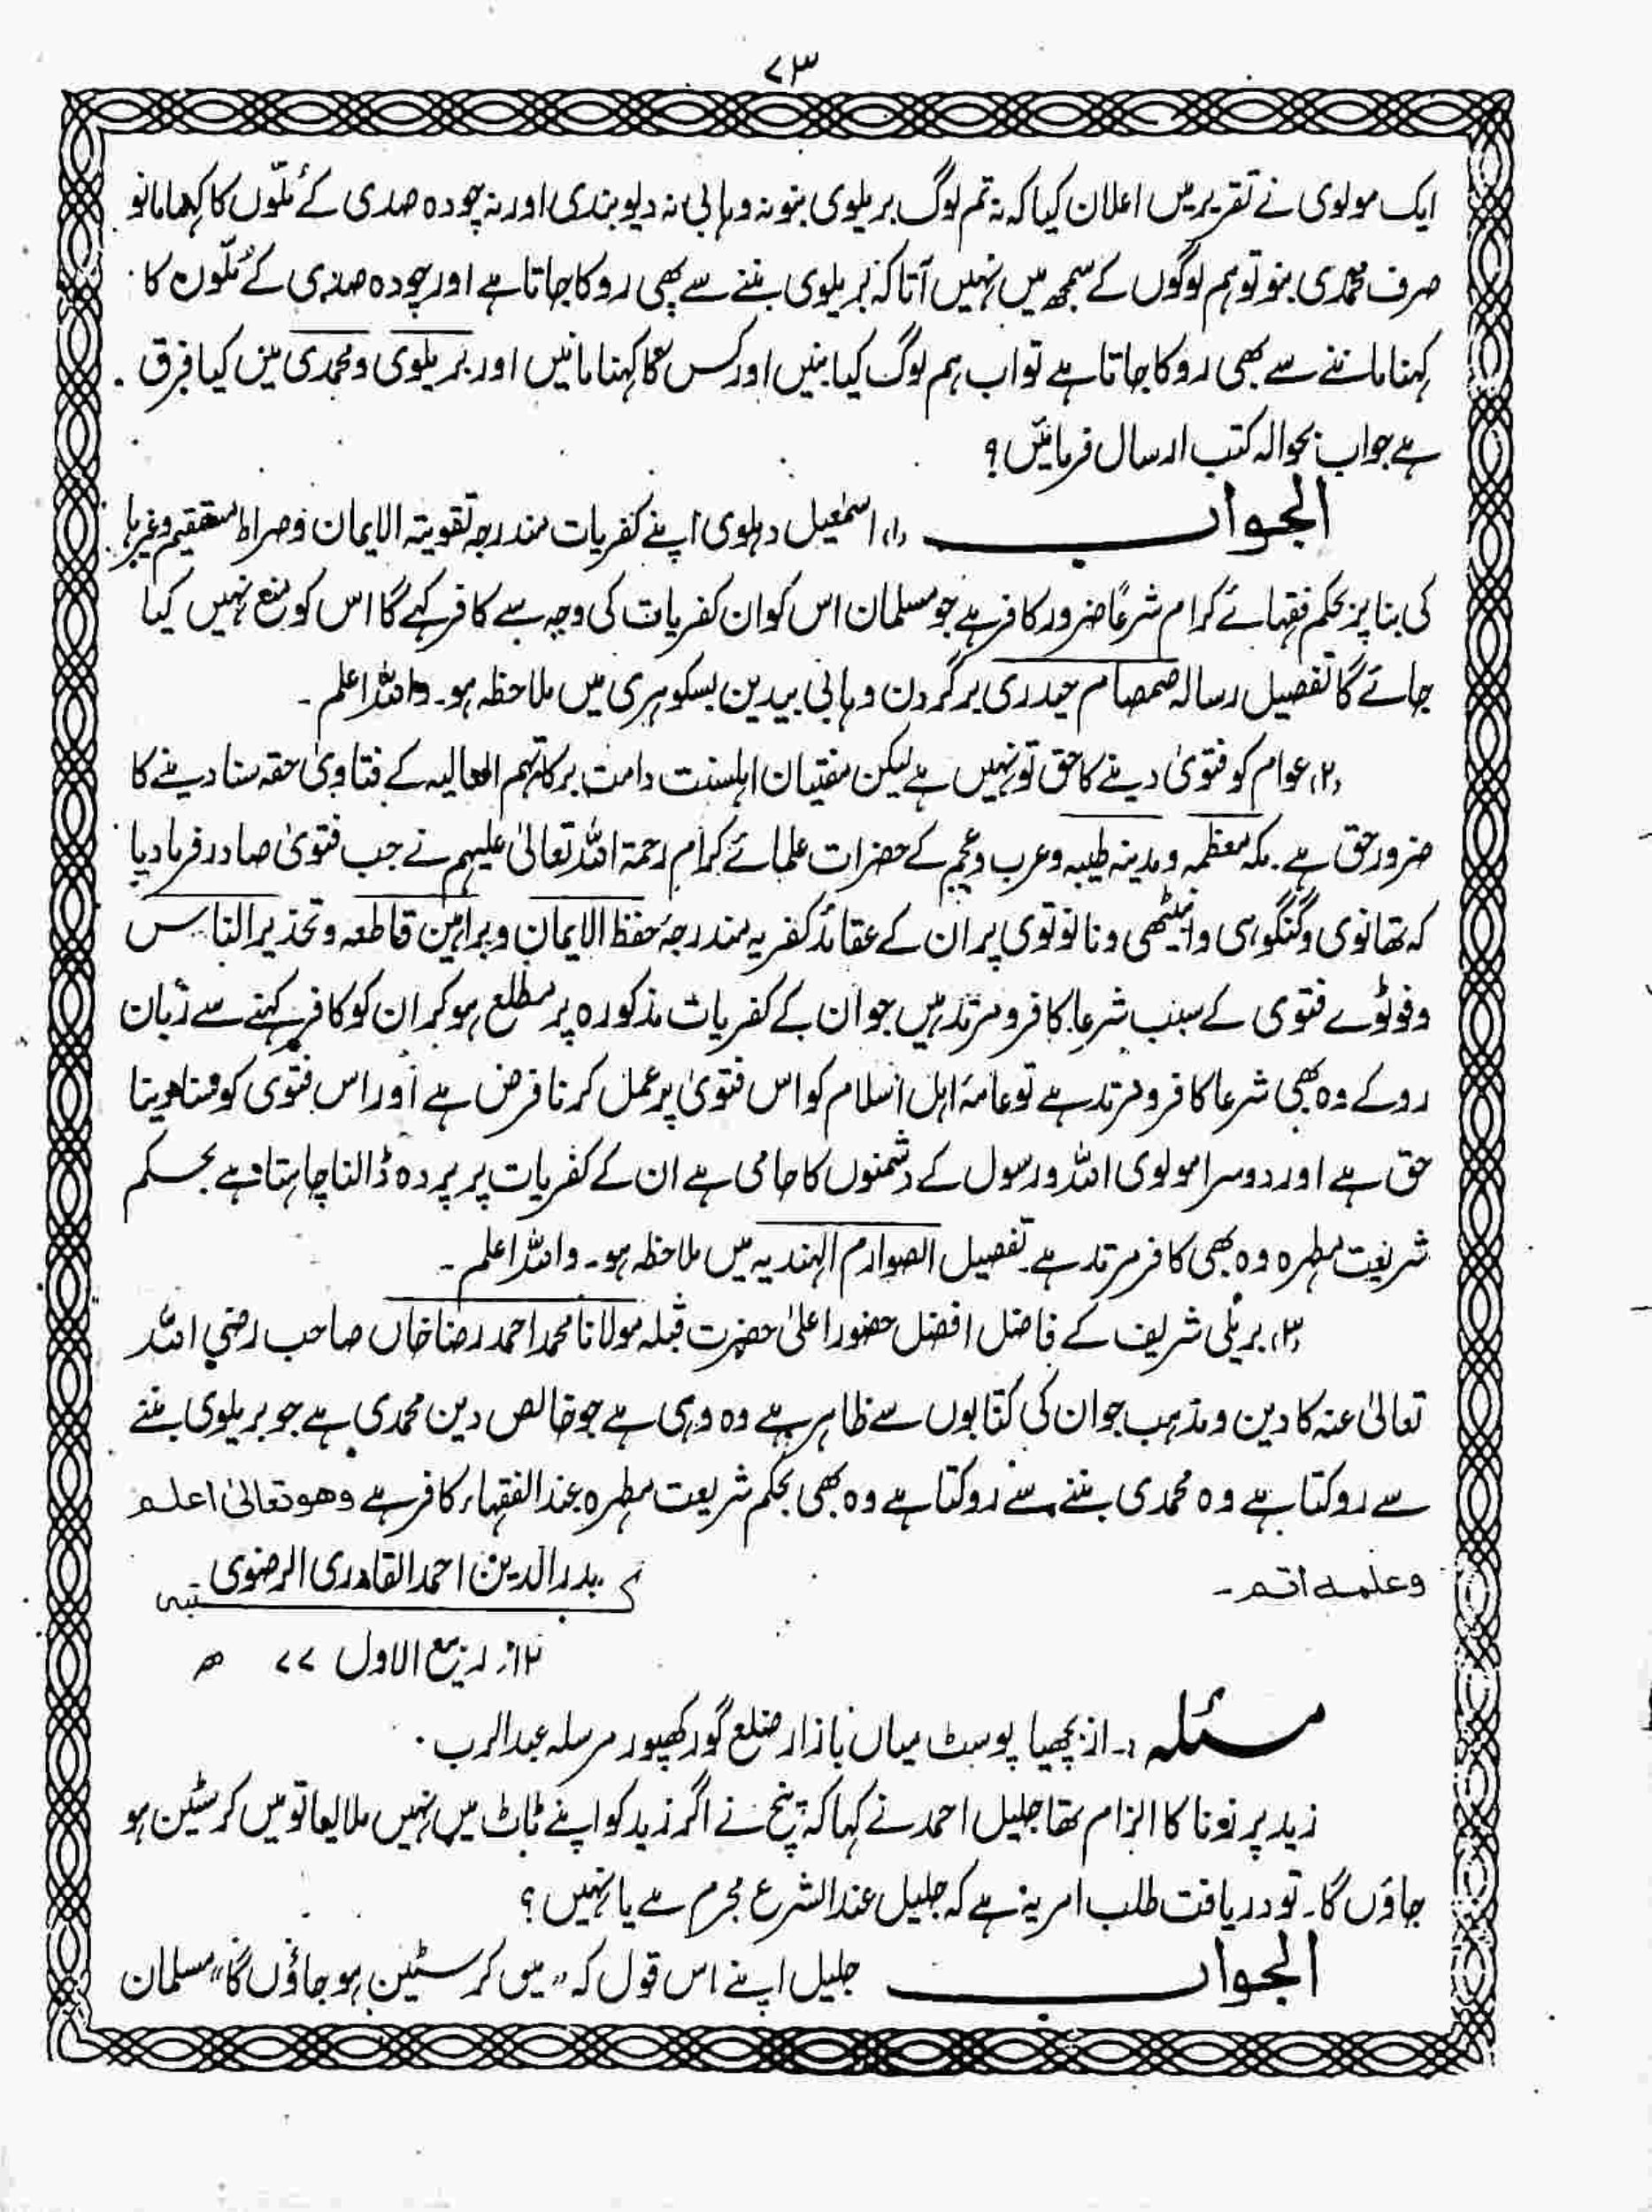 ۷۳
ایک مولوی نے تقریر میں اعلان کیا کہ نہ تم لوگ بریلوی بنو نہ وہابی نہ دیوبندی اور نہ چودہ صدی کے ملّوں کا کہنا مانو
صرف محمدی بنو تو ہم لوگوں کے سمجھ میں نہیں آتا کہ بریلوی بننے سے بھی روکا جاتا ہے اور چودہ صدی کے ملّوں کا
کہنا ماننے سے بھی روکا جاتا ہے تو اب ہم لوگ کیا بنیں اور کس کا کہنا مانیں اور بریلوی و محمدی میں کیا فرق
ہے جواب بحوالہ کتب ارسال فرمائیں؟
الجواب (۱) اسمٰعیل دہلوی اپنے کفریات مندرجہ تقویۃ الایمان و صراط مستقیم وغیرہا
کی بنا پر بحکم فقہائے کرام شرعًا ضرور کافر ہے جو مسلمان اس کو ان کفریات کی وجہ سے کافر کہے گا اس کو منع نہیں کیا
جائے گا تفصیل رسالہ صمصام حیدری بر گردن وہابی بیدین بسکوہری میں ملاحظہ ہو۔ واللہ اعلم۔
(۲) عوام کو فتویٰ دینے کا حق تو نہیں ہے لیکن مفتیان اہلسنت دامت برکاتہم العالیہ کے فتاویٰ حقہ سنا دینے کا
ضرور حق ہے۔ مکہ معظمہ و مدینہ طیبہ و عرب و عجم کے حضرات علمائے کرام رحمۃ اللہ تعالیٰ علیہم نے جب فتویٰ صادر فرما دیا
کہ تھانوی و گنگوہی و انبیٹھی و نانوتوی پر ان کے عقائد کفریہ مندرجہ حفظ الایمان و براہین قاطعہ و تحذیر الناس
و فوٹوے فتوی کے سبب شرعا کافر و مرتد ہیں جو ان کے کفریات مذکورہ پر مطلع ہو کر ان کو کافر کہنے سے زبان
روکے وہ بھی شرعا کافر و مرتد ہے تو عامۂ اہل اسلام کو اس فتویٰ پر عمل کرنا فرض ہے اور اس فتوی کو سنا دینا
حق ہے اور دوسرا مولوی اللہ و رسول کے دشمنوں کا حامی ہے ان کے کفریات پر پردہ ڈالنا چاہتا ہے بحکم
شریعت مطہرہ وہ بھی کافر مرتد ہے۔ تفصیل الصوارم الہندیہ میں ملاحظہ ہو۔ واللہ اعلم۔
(۳) بریلی شریف کے فاضل افضل حضور اعلیٰ حضرت قبلہ مولانا محمد احمد رضا خاں صاحب رضی اللہ
تعالیٰ عنہ کا دین و مذہب جو ان کی کتابوں سے ظاہر ہے وہ وہی ہے جو خالص دین محمدی ہے جو بریلوی بننے
سے روکتا ہے وہ محمدی بننے سے روکتا ہے وہ بھی بحکم شریعت مطہرہ عند الفقہاء کافر ہے وھو تعالیٰ اعلم
وعلمہ اتم۔
کتبہ بدر الدین احمد القادری الرضوی
۱۲؍ ربیع الاول ۷۷ ھ
مسئلہ :۔ از بچھیا پوسٹ میاں بازار ضلع گورکھپور مرسلہ عبد الرب۔
زید پر زنا کا الزام تھا جلیل احمد نے کہا کہ پنچ نے اگر زید کو اپنے ٹاٹ میں نہیں ملا لیا تو میں کرسٹین ہو
جاؤں گا۔ تو دریافت طلب امر یہ ہے کہ جلیل عند الشرع مجرم ہے یا نہیں؟
الجواب جلیل اپنے اس قول کہ "میں کرسٹین ہو جاؤں گا" مسلمان